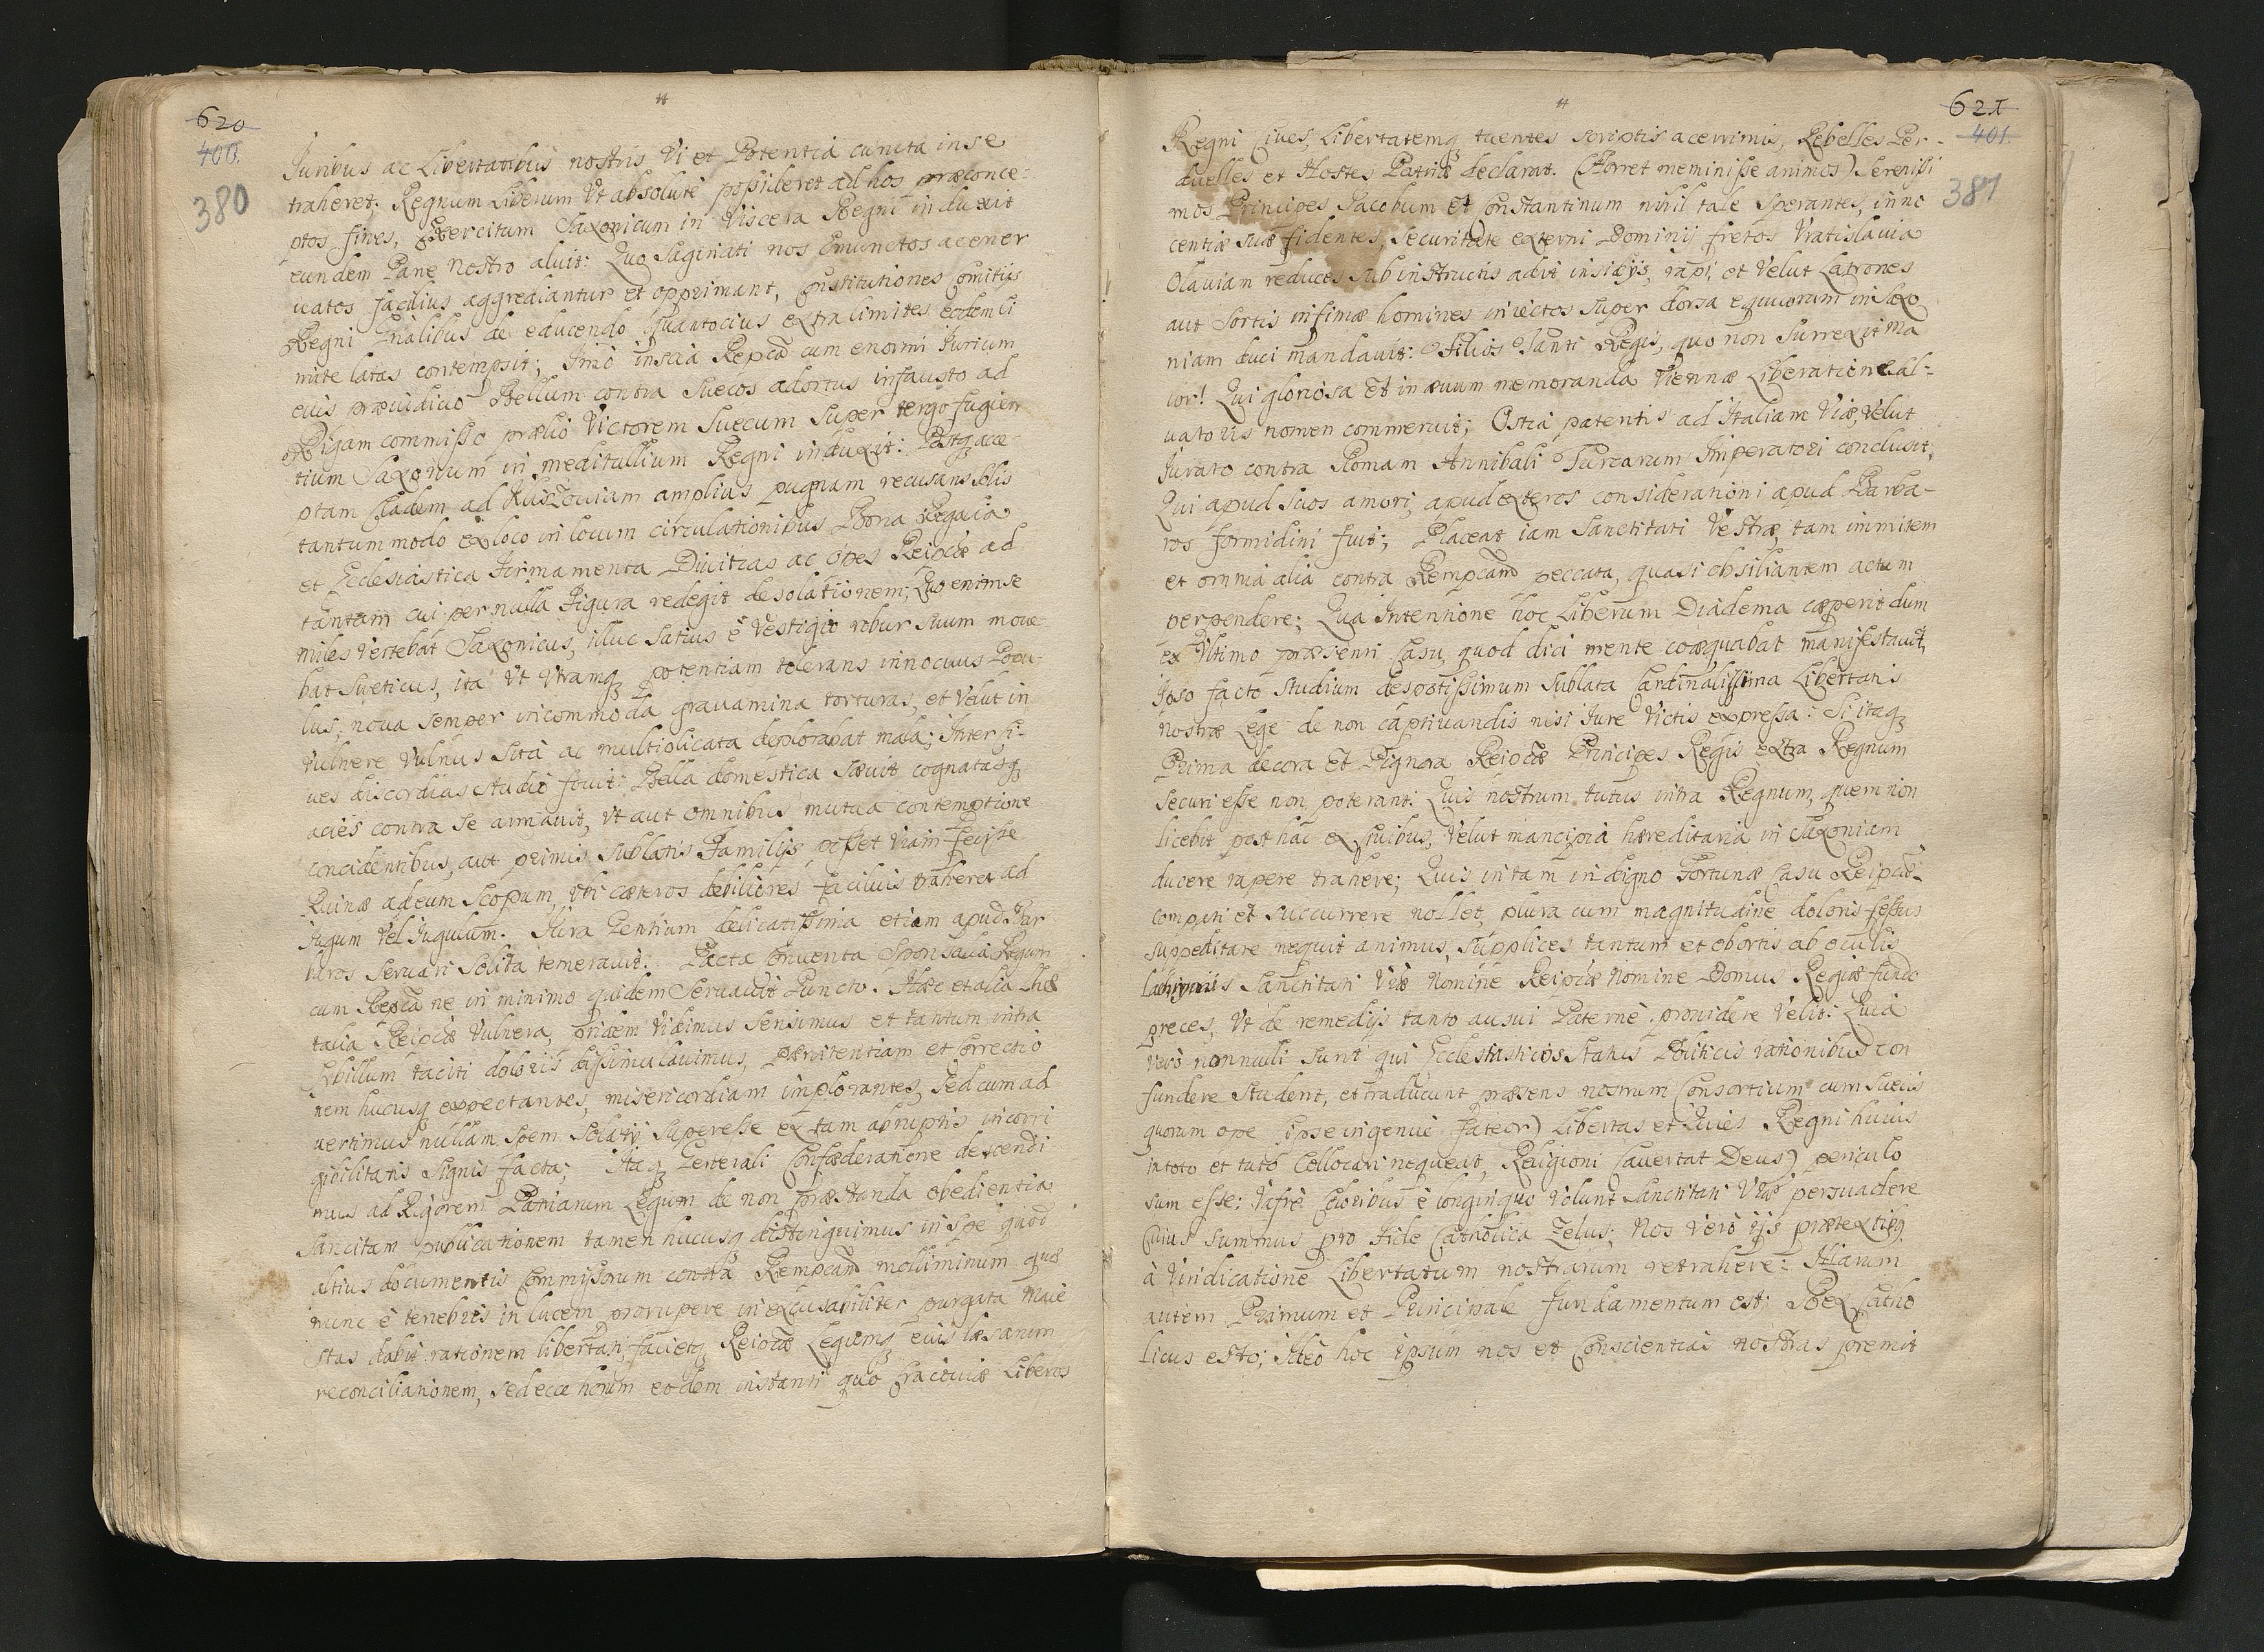 620
400.
380
Iuribus ac Libertatibus nostris Vi et Potentia cuncta in se
traheret. Regnum Liberum Vt absolute possideret ad hos præconce-
ptos fines, Exercitum Saxonicum in Viscera Regni induxit
eundem Pane nostro aluit: Quo Saginati nos Emunctos ac ener
uatos facilius aggrediantur et opprimant, Constitutiones Comitijs
Regni de educendo quantocius extra limites eodem li
mite latas contempsit; Imo inscia Repca cum enormi Iurium
euis præiudicio Bellum contra Suecos adortus infausto ad
Rigam commisso prælio Victorem Suecum Super tergo fugien
tium Saxonum in meditullium Regni induxit: Postq acce-
ptam Cladem ad amplius pugnam recusans Solis
tantummodo ex loco in locum circulationibus Bona Regalia
et Ecclesiastica firmamenta Diuitias ac opes Reipcæ ad
tantam cui per nulla figura redegit desolationem; Quo enim se
miles Vertebat Saxonicus, illuc Satius è Vestigio robur Suum moue
bat Sueticus, ita Vt Vtramq potentiam tolerans innocuus Popu
lus, noua semper incommoda grauamina torturas, et Velut in
Vulnere Vulnus Sita ac multiplicata deplorabat mala; Inter Ci-
ues discordias Studio fouit: Bella domestica Sæuit cognatasq
acies contra Se armauit, Vt aut omnibus mutua contemptione
concidentibus, aut primis Sublatis Familijs posset Viam fecisse
Ruinæ ad eum Scopum, Vbi cæteros debiliores facilius traheret ad
Iugum Vel Iugulum. Iura Gentium delicatissima etiam apud Bar
baros Seruari Solita temerauit. Pacta Conuenta Sponsalia Regum
cum Repca ne in minimo quidem Seruauit Puncto. Hæc et alia Lhæ
talia Reipcæ Vulnera, pridem Vidimus Sensimus et tantum intra
taciti doloris dissimulauimus, pænitentiam et Correctio
nem hucusq expectantes, misericordiam implorantes, Sed cum ad
uertimus nullam Spem Solatij Superesse ex tam abruptis incorri
gibilitatis Signis facta; Itaq Generali Confæderatione descendi
mus ad Rigorem Patriarum Legum de non præstanda obedientia
Sancitam publicationem tamen hucusq distinguimus in Spe quod
altius documentis Commissorum contra Rempcam moliminum quæ
nunc è tenebris in lucem prorupere inexcusabiliter purgata Maie
stas dabit rationem libertati, facietq Reipcæ Legumq euis læsarum
reconciliationem, Sed ecce horum eodem instanti quo Cracouiæ Liberos
621
401.
381
Regni Ciues, Libertatemq tuentes scriptis acerrimis, Rebelles Per-
duelles et Hostes Patriæ declarat. (Horret meminisse animus) Serenissi
mos Principes Jacobum Et Constantinum nihil tale Sperantes, inno
centiæ suæ fidentes, Securitate externi Dominij fretos Vratislauia
Olauiam reduces Sub instructis adit insidijs, rapi, et Velut Latrones
aut Sortis infimæ homines iniectos Super dorsa equorum in Saxo
niam duci mandauit: Filios Tanti Regis, quo non Surrexit ma
ior! Qui gloriosa Et in æuum memoranda Viennæ Liberatione Sal-
uatoris nomen commeruit; Ostia patentis ad Italiam Viæ, Velut
Iurato contra Romam Annibali Turcarum Imperatori conclusit,
Qui apud Suos amori, apud exteros considerationi apud Barba-
ros formidini fuit; Placeat iam Sanctitati Vestræ, tam immitem
et omnia alia contra Rempcam peccata, quasi obsiliantem actum
perpendere; Qua Intentione hoc Liberum Diadema cæperit dum
ex Vltimo præsenti Casu, quod dici mente coæquabat manifestauit,
Ipso facto Studium despotissimum Sublata Cardinalissima Libertatis
nostræ Lege de non captiuandis nisi Iure Victis expressa: Si itaq
Prima decora Et Pignora Reipcæ Principes Regis extra Regnum
Securi esse non poterant: Quis nostrum tutus intra Regnum, quem non
licebit post hac ex Ciuibus, Velut mancipia hæreditaria in Saxoniam
ducere rapere trahere; Quis in tam indigno Fortunæ Casu Reipcæ
compati et Succurrere nollet, plura cum magnitudine doloris fessus
suppeditare nequit animus, Supplices tantum et obortis ab oculis
lachrymis Sanctitati Vræ Nomine Reipcæ Nomine Domus Regiæ fundo
preces, Vt de remedijs tanto ausui Paterne prouidere Velit: Quia
Vero nonnulli Sunt qui Ecclesiasticos Status Politicis rationibus con
fundere Student, et traducunt præsens nostrum Consortium cum Suecis
quorum ope (ipse ingenue fateor) Libertas et Quies Regni huius
in toto et tuto Collocari nequeat, Religioni (auertat Deus) periculo
sum esse: Vafre Coloribus è longinquo Volunt Sanctitati Vræ persuadere
Cuius Summus pro fide Catholica Zelus; Nos Vero ijs prætextibq
à Vindicatione Libertatum nostrarum retrahere: Illarum
autem Primum et Principale Fundamentum est; Rex Catho
licus esto; Ideo hoc ipsum nos et Conscientias nostras premit